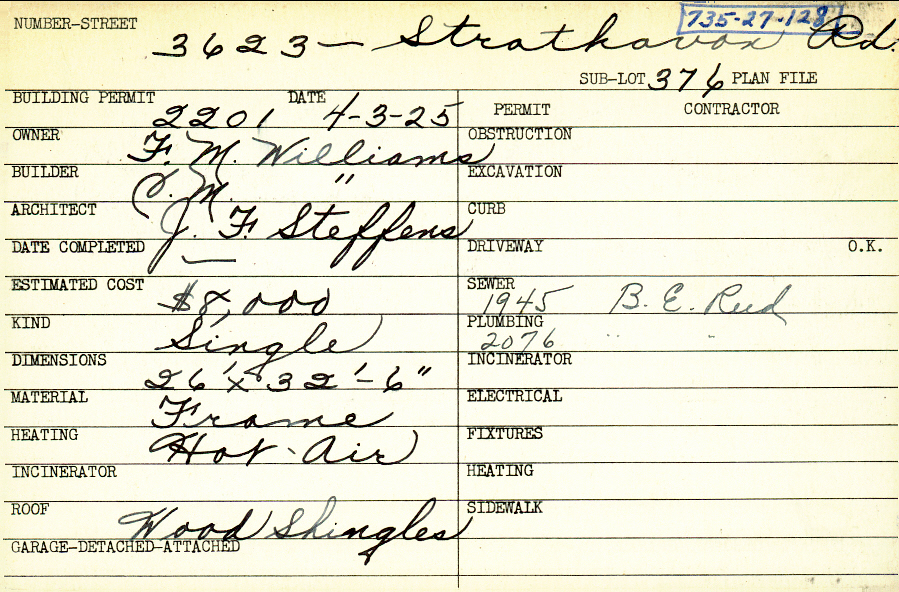 735-27-128
NUMBER-STREET 3623 - Strathavon Rd.
SUB-LOT 376 PLAN FILE
BUILDING PERMIT 2201 DATE 4-3-25 PERMIT CONTRACTOR
OWNER F. M. Williams OBSTRUCTION
BUILDER C. M. " EXCAVATION
ARCHITECT J. F. Steffens CURB
DATE COMPLETED — DRIVEWAY O.K.
ESTIMATED COST $8,000 SEWER 1945 B. E. Reed
KIND Single PLUMBING 2076 " "
DIMENSIONS 26' x 32'-6" INCINERATOR
MATERIAL Frame ELECTRICAL
HEATING Hot-Air FIXTURES
INCINERATOR HEATING
ROOF Wood Shingles SIDEWALK
GARAGE-DETACHED-ATTACHED